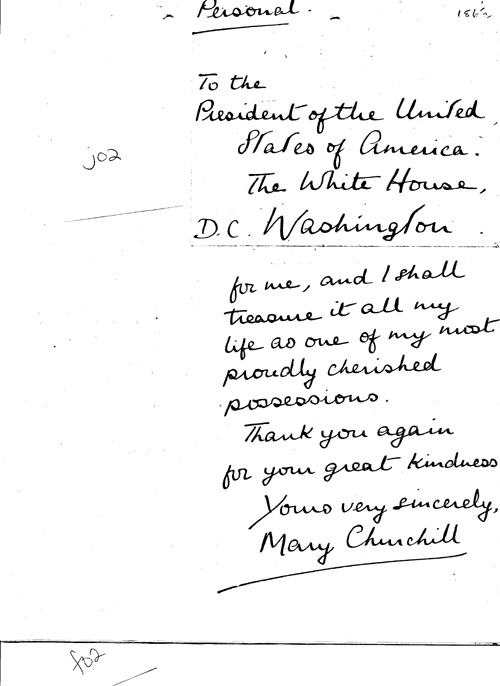 Personal.
To the
President of the United
States of America.
The White House,
D.C. Washington.
j02
for me, and I shall
treasure it all my
life as one of my most
proudly cherished
possessions.
Thank you again
for your great kindness
Yours very sincerely,
Mary Churchill
f02